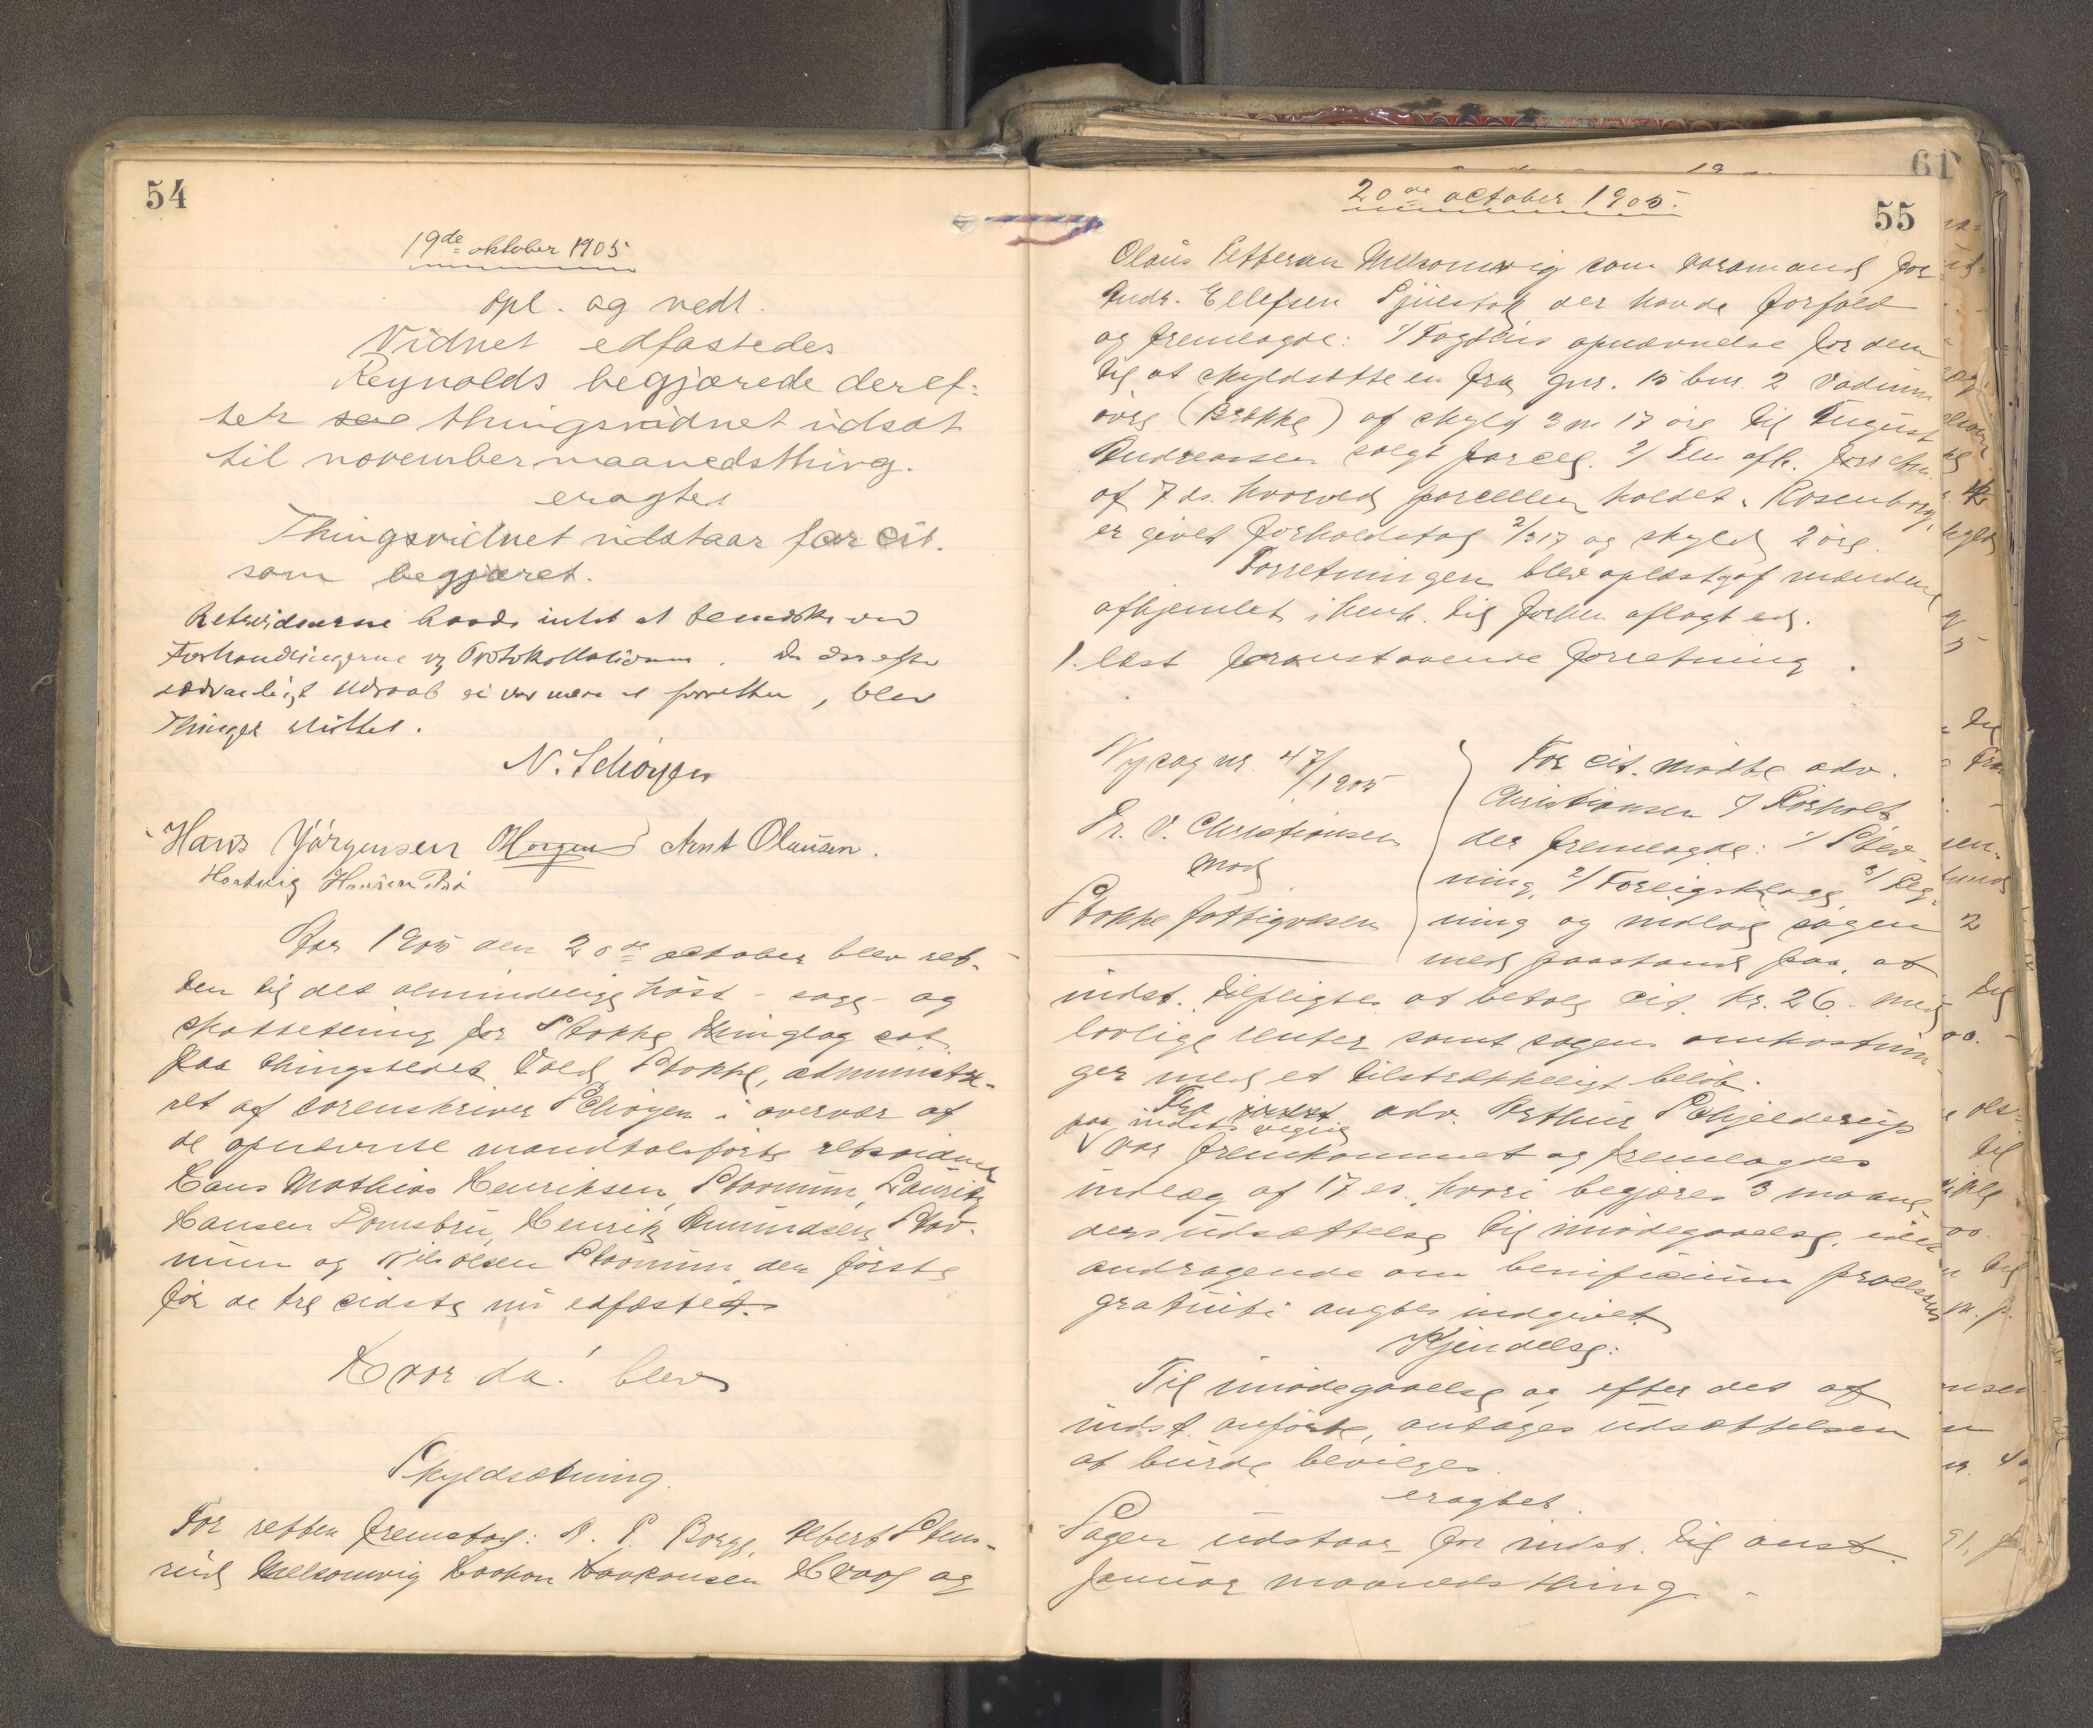 54
19de oktober 1905
Opl. og vedt.
Vidnet edfæstedes
Reynolds begjærede deref-
ter thingsvidnet udsat
til november maanedsthing.
eragtet
Thingsvidnet udstaar for cit.
som begjæret.
Retsvidnerne havde intet at bemærke ved
Forhandlingerne og Protokollationen. Da der efter
sædvanligt Udraab ei var mere at forrette, blev
Thinget sluttet.
N. Schøyen
Hans Jørgensen Horgen Arnt Olausen.
Hartvig Hansen Bø
Aar 1905 den 20de october blev ret-
ten til det almindelige høst- sage- og
skatteting for Stokke thinglag sat
paa thingstedet Vold, Stokke, administre-
ret af sorenskriver Schøyen i overvær af
de opnævnte mandtalsførte retsvidner
Hans Mathias Henriksen Storum, Lauritz
Hansen Tomsbru, Henrik Amundsen Stov-
num og Nils Olsen Stovnum, den første
før de tre sidste nu edfæstet.
Hvor da! blev
Skyldsætning.
For retten fremstod: A. P. Borge, Albert Stens-
rud Melsomvig Haakon Haakonsen Hvaal og
61
20de october 1905.
55
Olaus Petersen Melsomvig som varamand for
Andr. Ellefsen Gjuestad der havde forfald
og fremlagde: 1/ Fogdens opnævnelse for dem
til at skyldsætte en fra gnr. 15 bnr. 2 Vadum
øvre (Brække) af skyld 3 m 17 øre til August
Andreassen solgt parcel. 2/ Den afh. forretn.
af 7 ds. hvorved parcellen kaldet "Rosenborg"
er givet forholdstal 2/317 og skyld 2 øre.
Forretningen blev oplæst og af mændene
afhjemlet i henh. til forhen aflagt ed.
1. læst foranstaaende forretning.
Ny sag nr. 47/1905
Fr. V. Christiansen
mod
Stokke fattigvæsen
For cit. mødte adv.
Christiansen v/ Kirholt
der fremlagde: 1/ Stev-
ning, 2/ Forligsklage, 3/ Reg-
ning og indlod sagen
med paastand paa, at
indst. tilpligtes at betale cit. kr. 26. med
lovlige renter samt sagens omkostnin-
ger med et tilstrækkeligt beløb.
Fra adv. Arthur Schjelderup
paa indsts vegne
var fremkommet og fremlagdes
indlæg af 17 ds. hvori begjæres 3 maane-
ders udsættelse til imødegaaelse, idet
andragende om benificium processus
gratuiti angives indgivet
Kjendelse:
Til imødegaaelse og efter det af
indst. anførte, antages udsættelsen
at burde bevilges.
eragtet.
Sagen udstaar for indst. til anst.
januar maanedsthing.